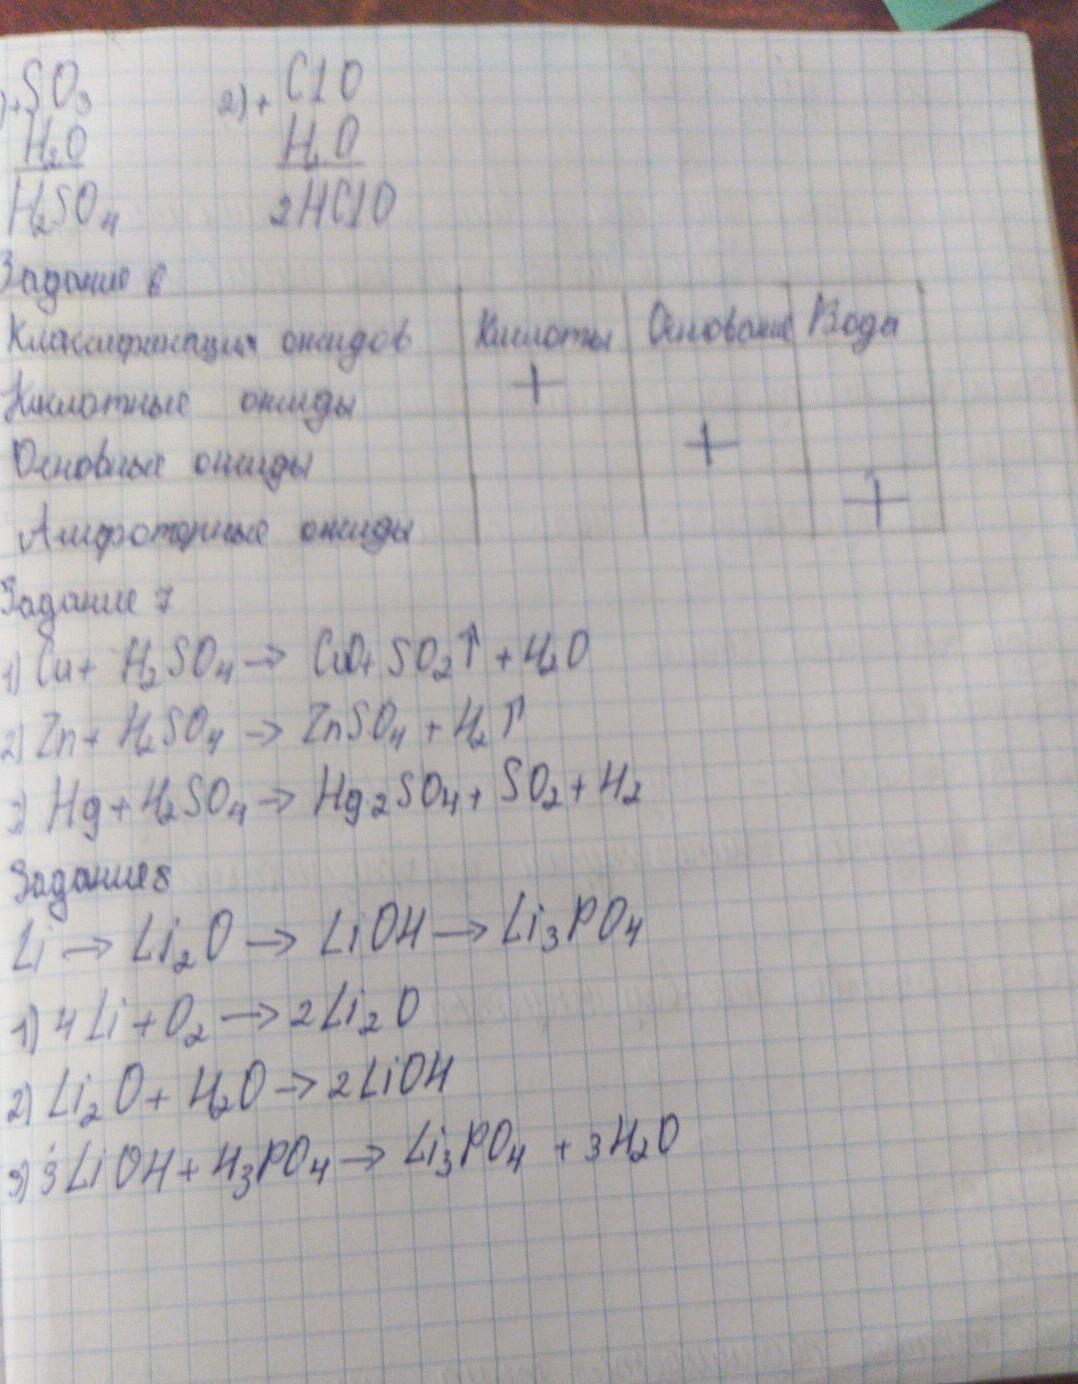 )+SO₃ 2)+ClO
H₂O H₂O
H₂SO₄ 2HClO
Задание 6
Классификация оксидов Кислоты Основание Вода
Кислотные оксиды +
Основные оксиды +
Амфотерные оксиды +
Задание 7
1) Cu + H₂SO₄ → CuO + SO₂↑ + H₂O
2) Zn + H₂SO₄ → ZnSO₄ + H₂↑
3) Hg + H₂SO₄ → Hg₂SO₄ + SO₂ + H₂
Задание 8
Li → Li₂O → LiOH → Li₃PO₄
1) 4Li + O₂ → 2Li₂O
2) Li₂O + H₂O → 2LiOH
3) 3LiOH + H₃PO₄ → Li₃PO₄ + 3H₂O